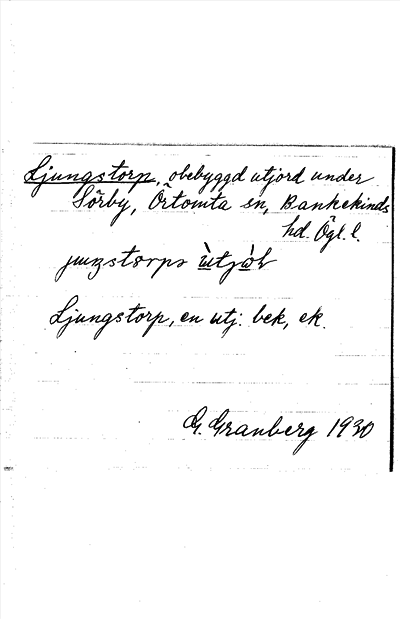 Ljungstorp, obebyggd utjord under
Sörby, Örtomta sn, Bankekinds
hd. Ögl. l.
Ljungstorp, en utj. bek, ek.
G. Granberg 1930